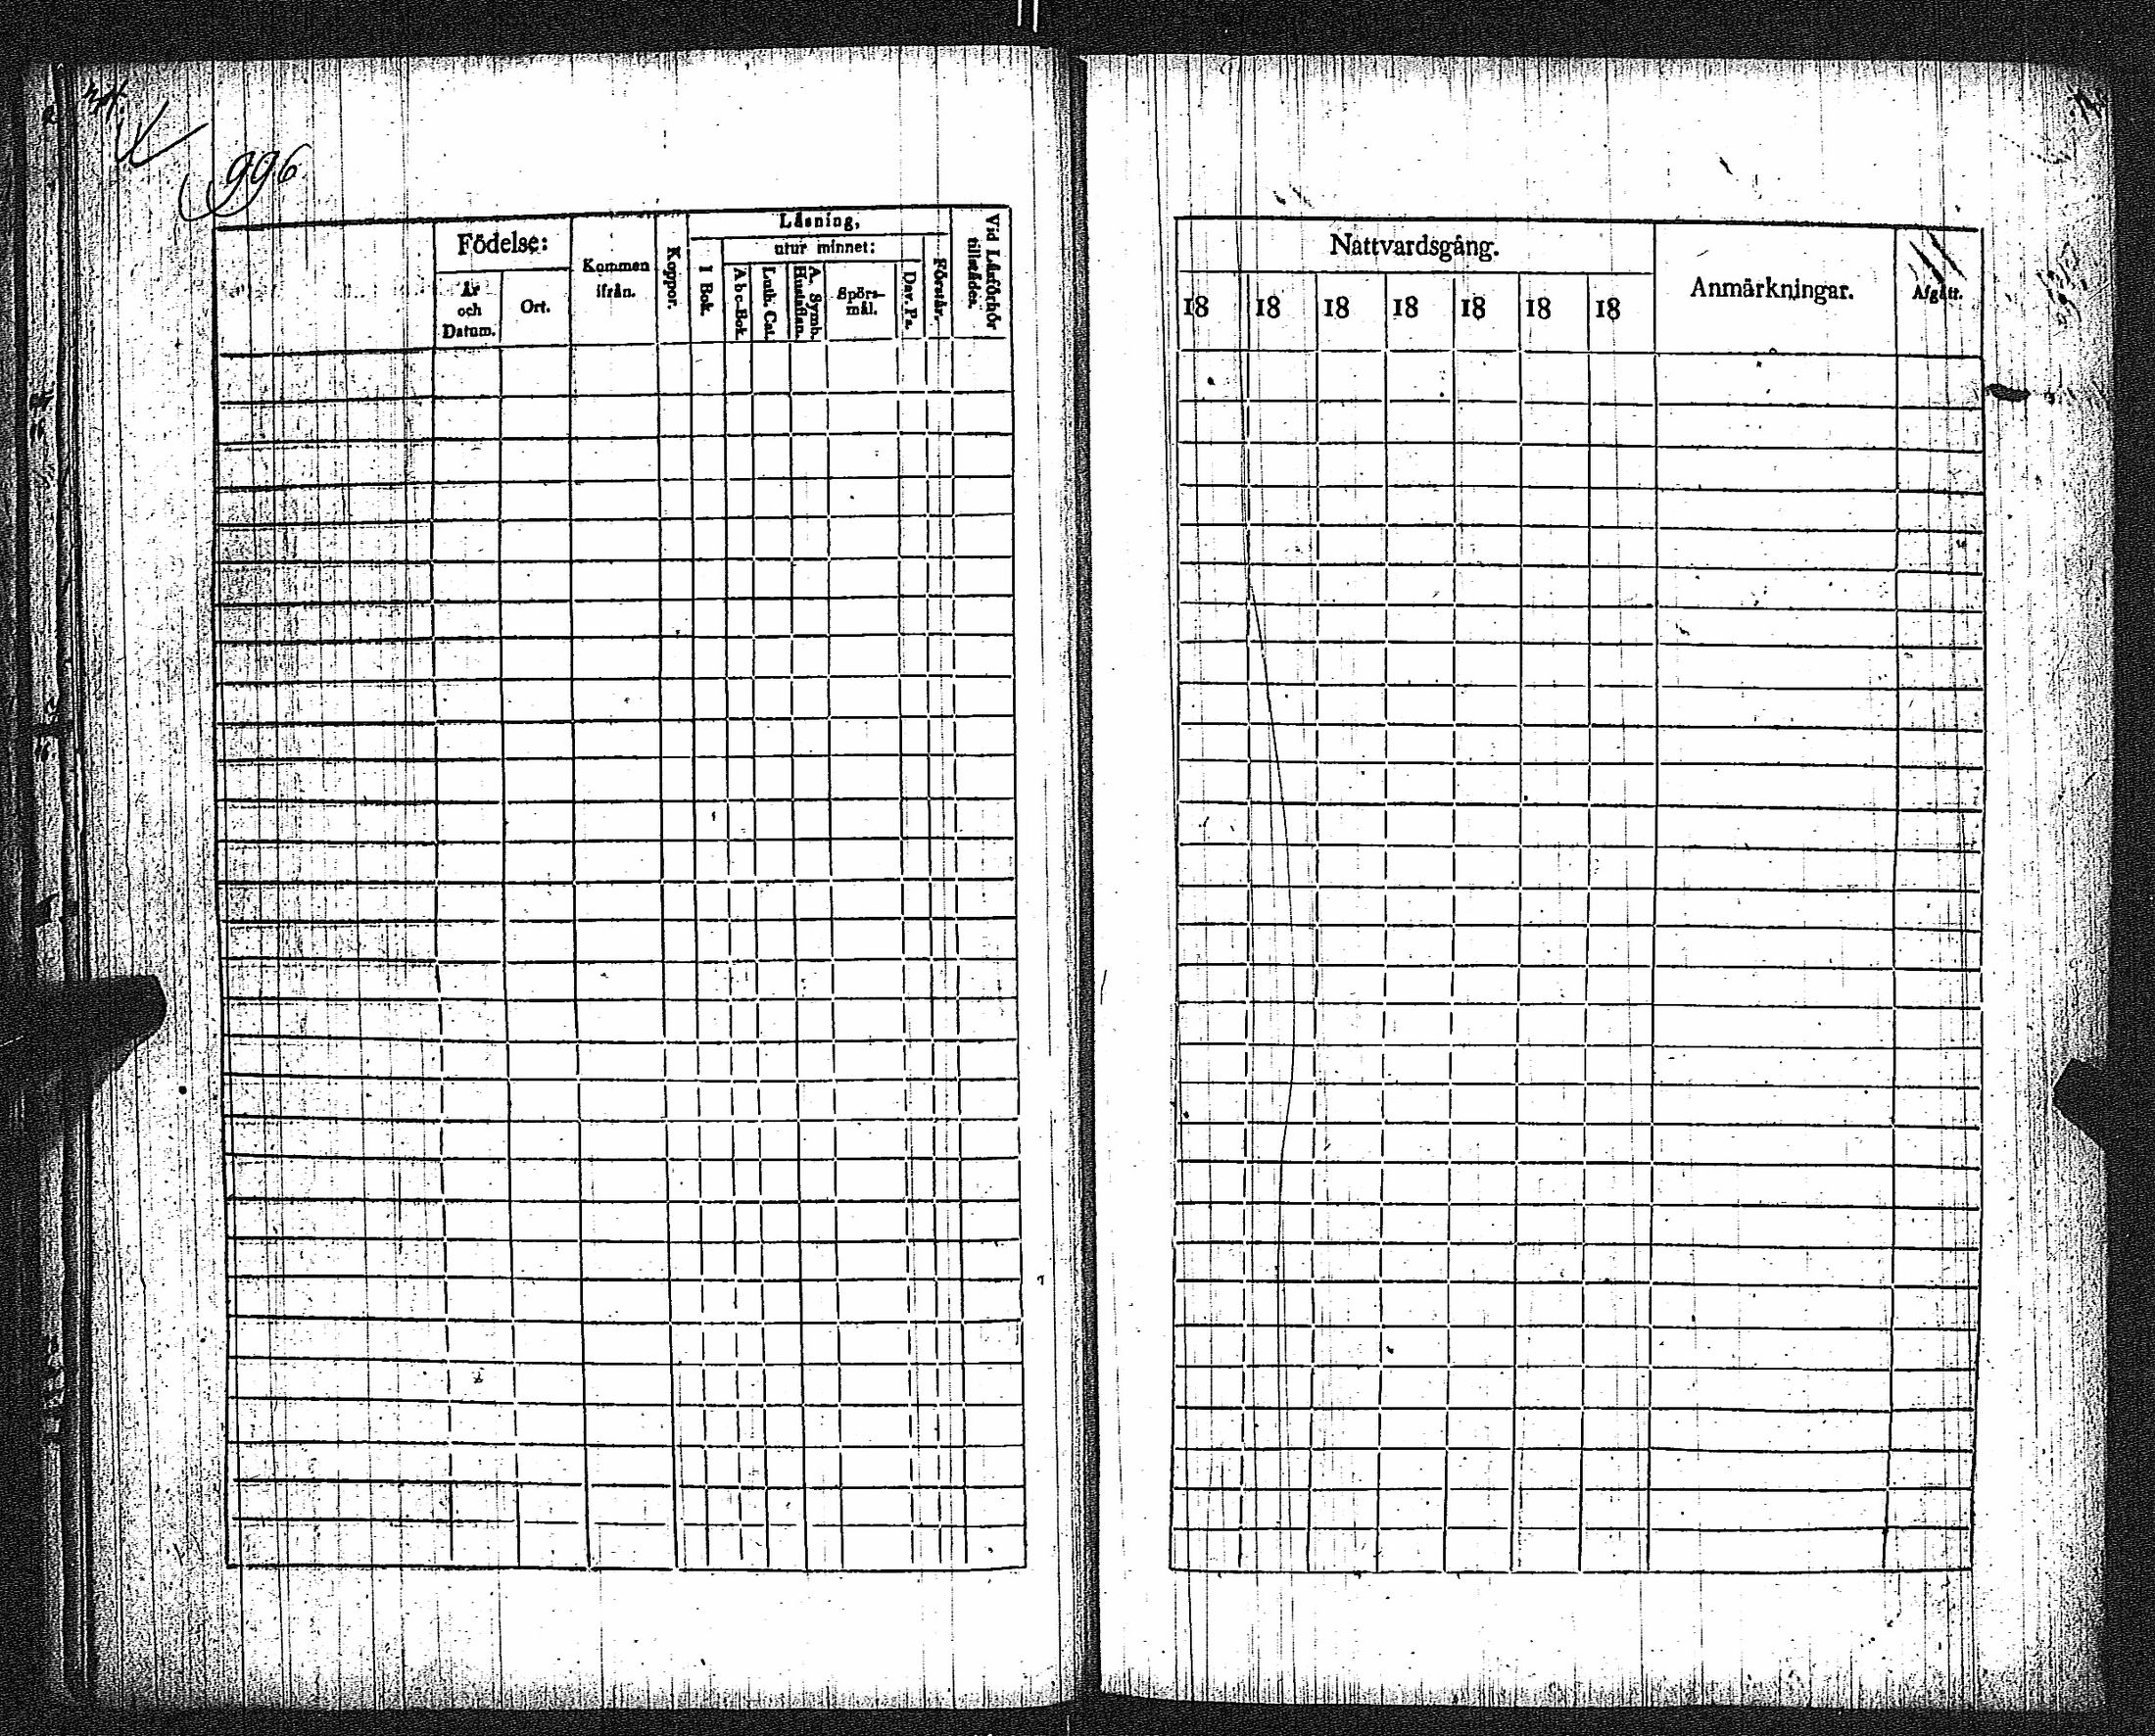 996
Födelse:
År och Datum.
Ort.
Kommen ifrån.
Koppor.
Läsning,
I Bok.
utur minnet:
A b c-Bok
Luth. Cat.
A. Symb. Hustaflan.
Spörs-mål.
Dav. Ps.
Förstår.
Vid Läsförhör tillstädes.
Nattvardsgång.
18 18 18 18 18 18 18
Anmärkningar.
Afgått.